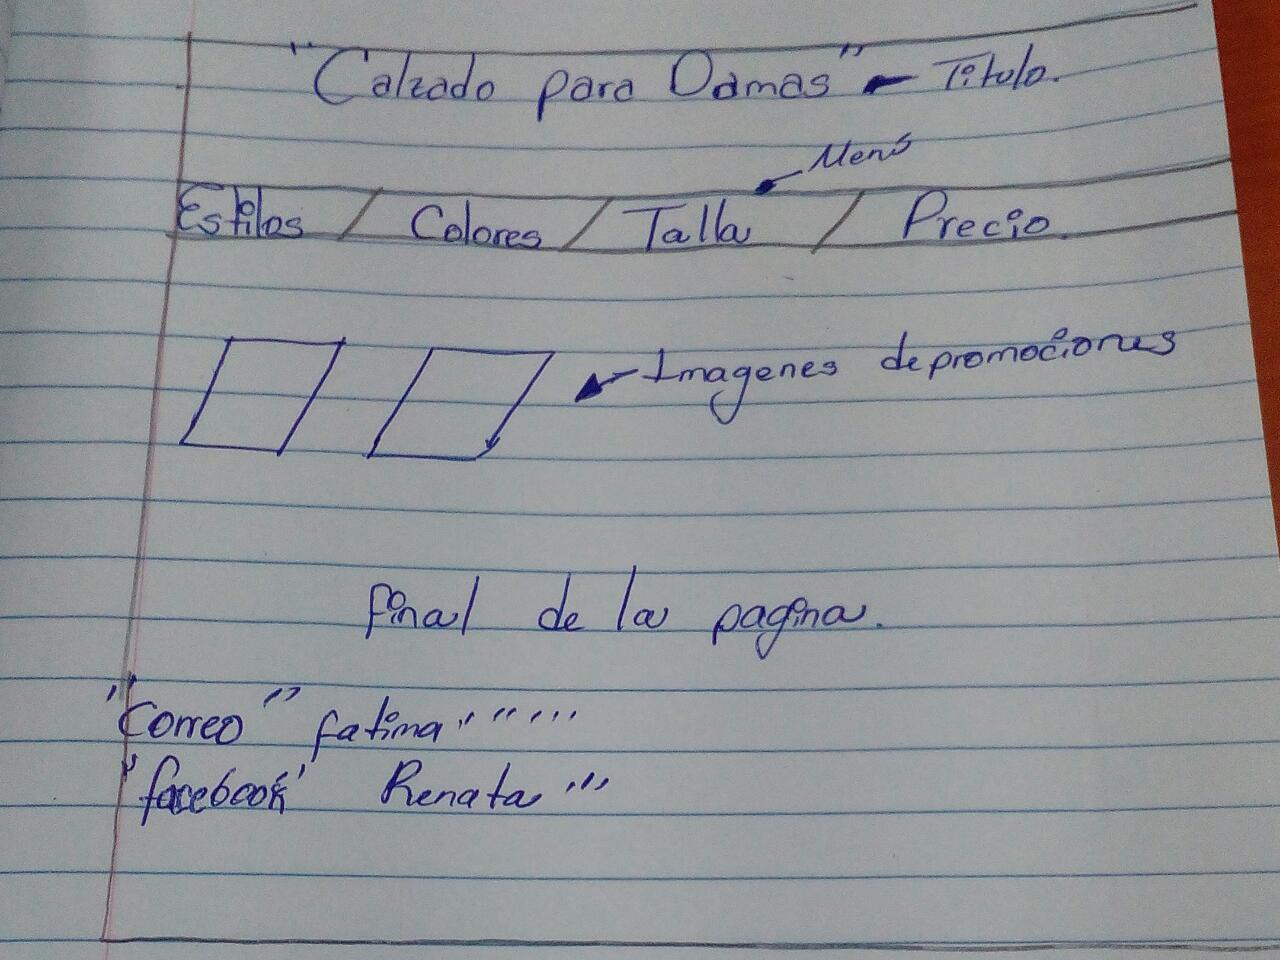 "Calzado para Damas" - Titulo.
Menú
Estilos / Colores / Talla / Precio.
Imagenes de promociones
final de la pagina.
"Correo" fatima """"
"facebook" Renata """